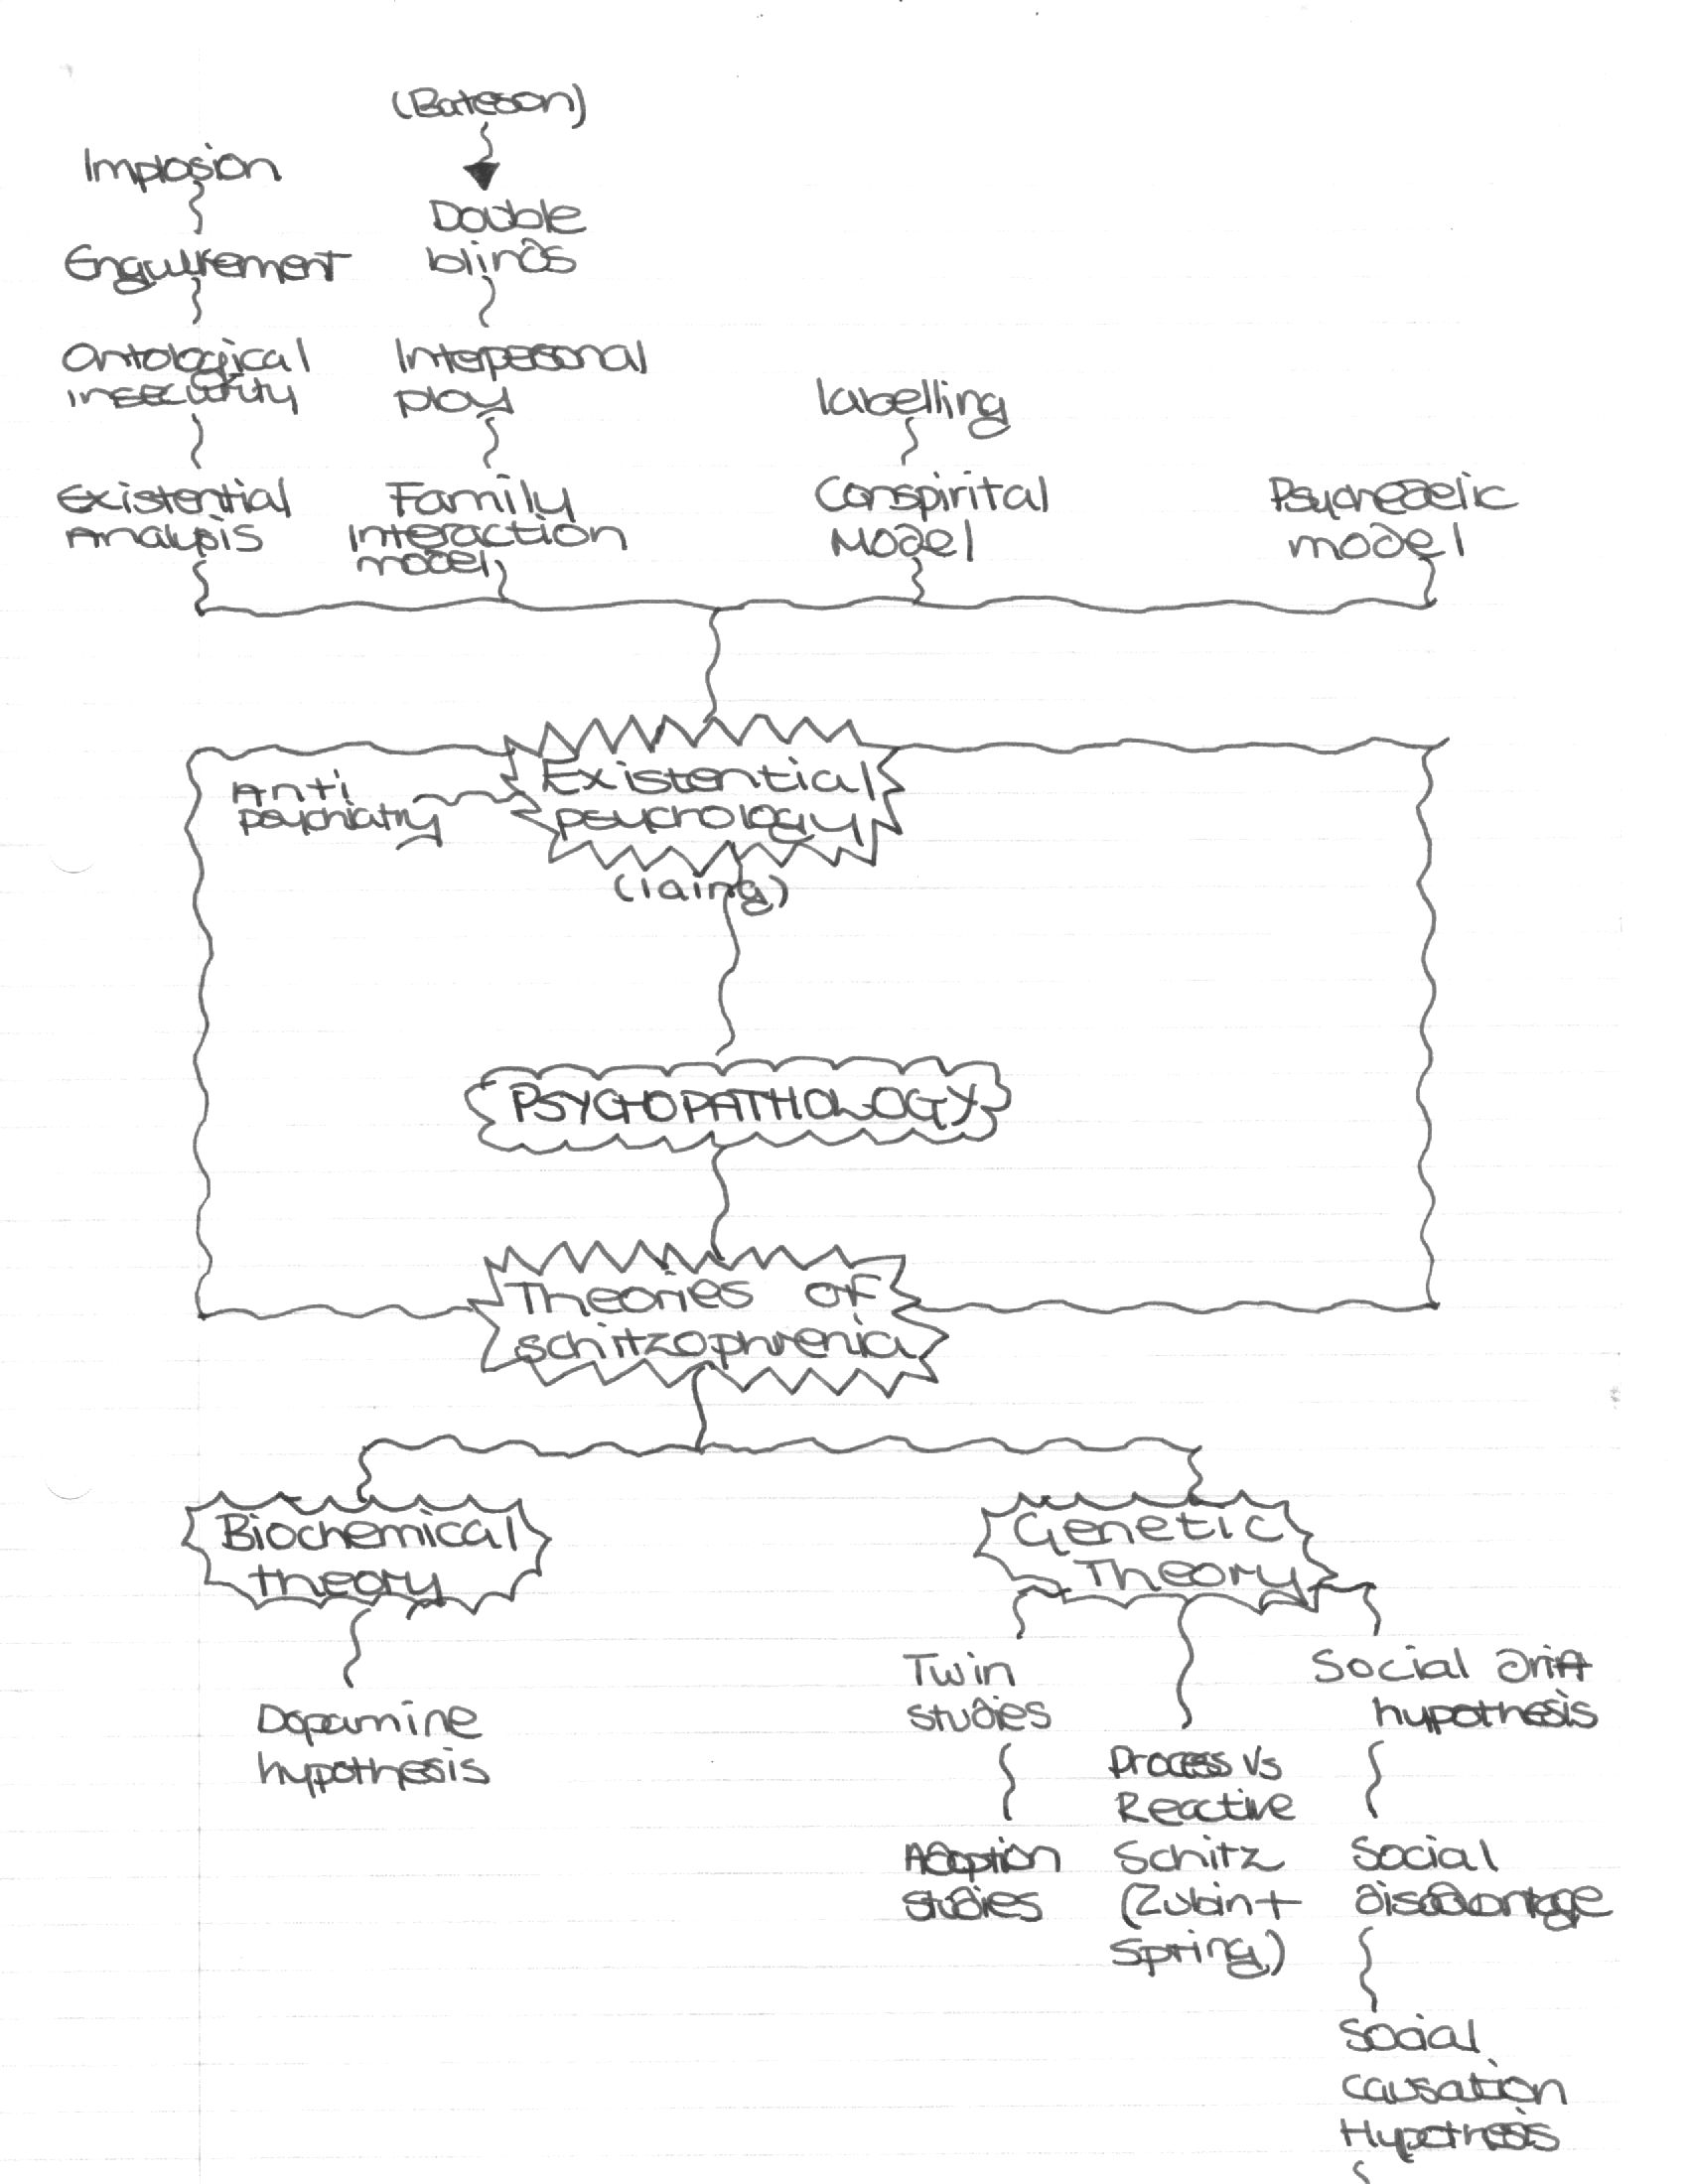 (Bateson)
Implosion
Double
blinds
Engulfement
Ontological
insecurity
Interpesonal
ploy
labelling
Existential
Analysis
Family
Interaction
model
Conspirital
Model
Psychedelic
model
Anti
psychiatry
Existential
psychology
(laing)
PSYCHOPATHOLOGY
Theories of
schitzophrenia
Biochemical
theory
Genetic
Theory
Dopamine
hypothesis
Twin
studies
Adoption
studies
Process Vs
Reactive
Schitz
(Zubin +
Spring)
Social drift
hypothesis
Social
disadvantage
Social
causation
Hypothesis